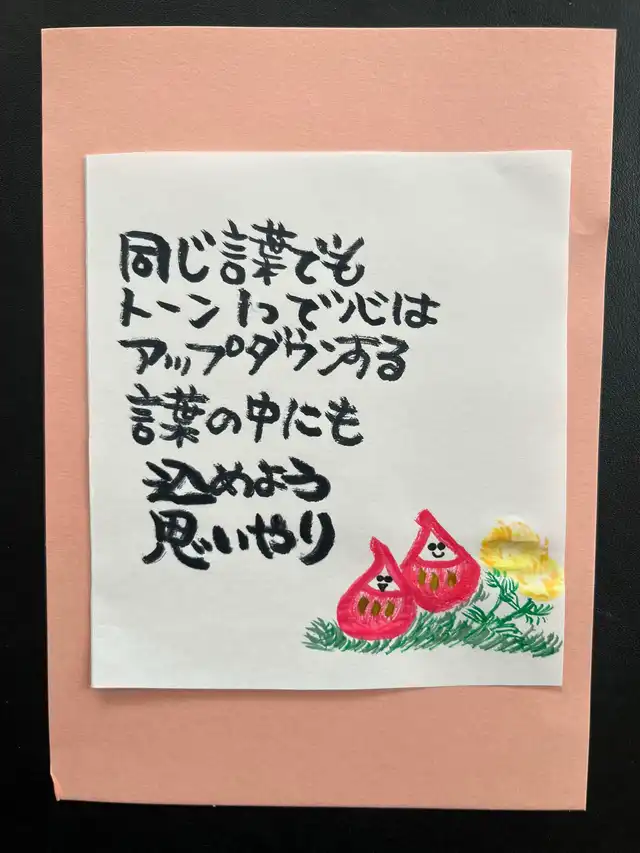 同じ言葉でも
トーン1つで心は
アップダウンする
言葉の中にも
込めよう
思いやり